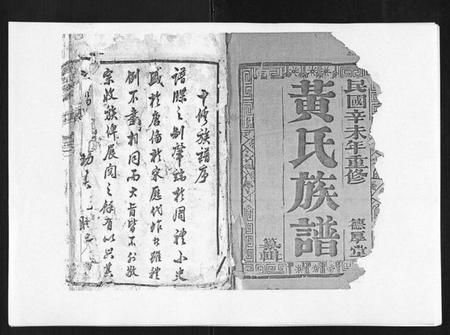 民國辛未年重修
黃氏族譜
德厚堂
十修族譜序
譜牒之制肇端於周禮小史
盛於唐備於宋歷代作者雖體
例不盡相同而大旨皆不外敬
宗收族俾展閱之餘有以興其